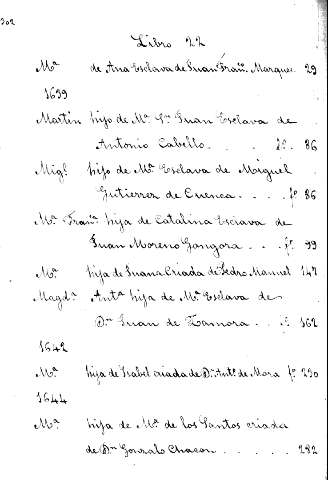 302
Libro 22
Mª de Ana Esclava de Juan Franº Marquez 29
1639
Martin hijo de Mª Sn Juan Esclava de
Antonio Cabello . . fº 86
Migl hijo de Mª Esclava de Miguel
Gutierrez de Cuenca . . . . fº 86
Mª Franca hija de Catalina Esclava de
Juan Moreno Gongora . . . fº 99
Mª hija de Juana Criada de Pedro Manuel 147
Magdª Antª hija de Mª Esclava de
Dn Juan de Zamora . . . fº 162
1642
Mª hija de Isabel criada de Dn Antº de Mora fº 230
1644
Mª hija de Mª de los Santos criada
de Dn Gonzalo Chacon . . . . . . 282